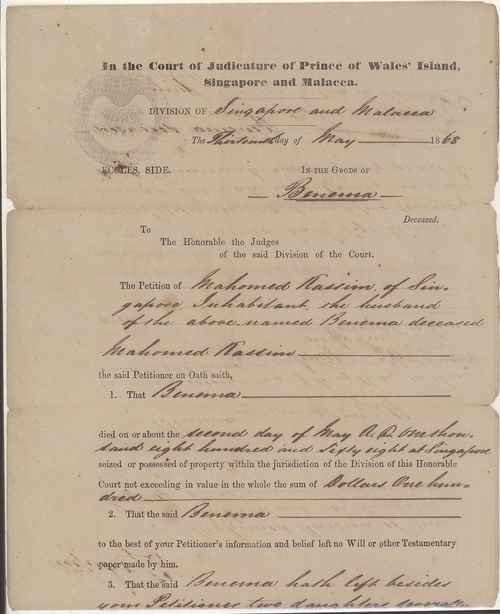 In the Court of Judicature of Prince of Wales' Island,
Singapore and Malacca.
DIVISION OF Singapore and Malacca
The Thirteenth day of May 1868
ECCLES. SIDE. IN THE GOODS OF
Benema
Deceased.
To
The Honorable the Judges
of the said Division of the Court.
The Petition of Mahomed Kassim, of Sin-
gapore, Inhabitant, the husband
of the above named Benema deceased
Mahomed Kassim
the said Petitioner on Oath saith,
1. That Benema
died on or about the second day of May A.D. One thou-
sand eight hundred and sixty eight at Singapore
seized or possessed of property within the jurisdiction of the Division of this Honorable
Court not exceeding in value in the whole the sum of Dollars One hun-
dred
2. That the said Benema
to the best of your Petitioner's information and belief left no Will or other Testamentary
paper made by him.
3. That the said Benema hath left besides
your Petitioner two daughters